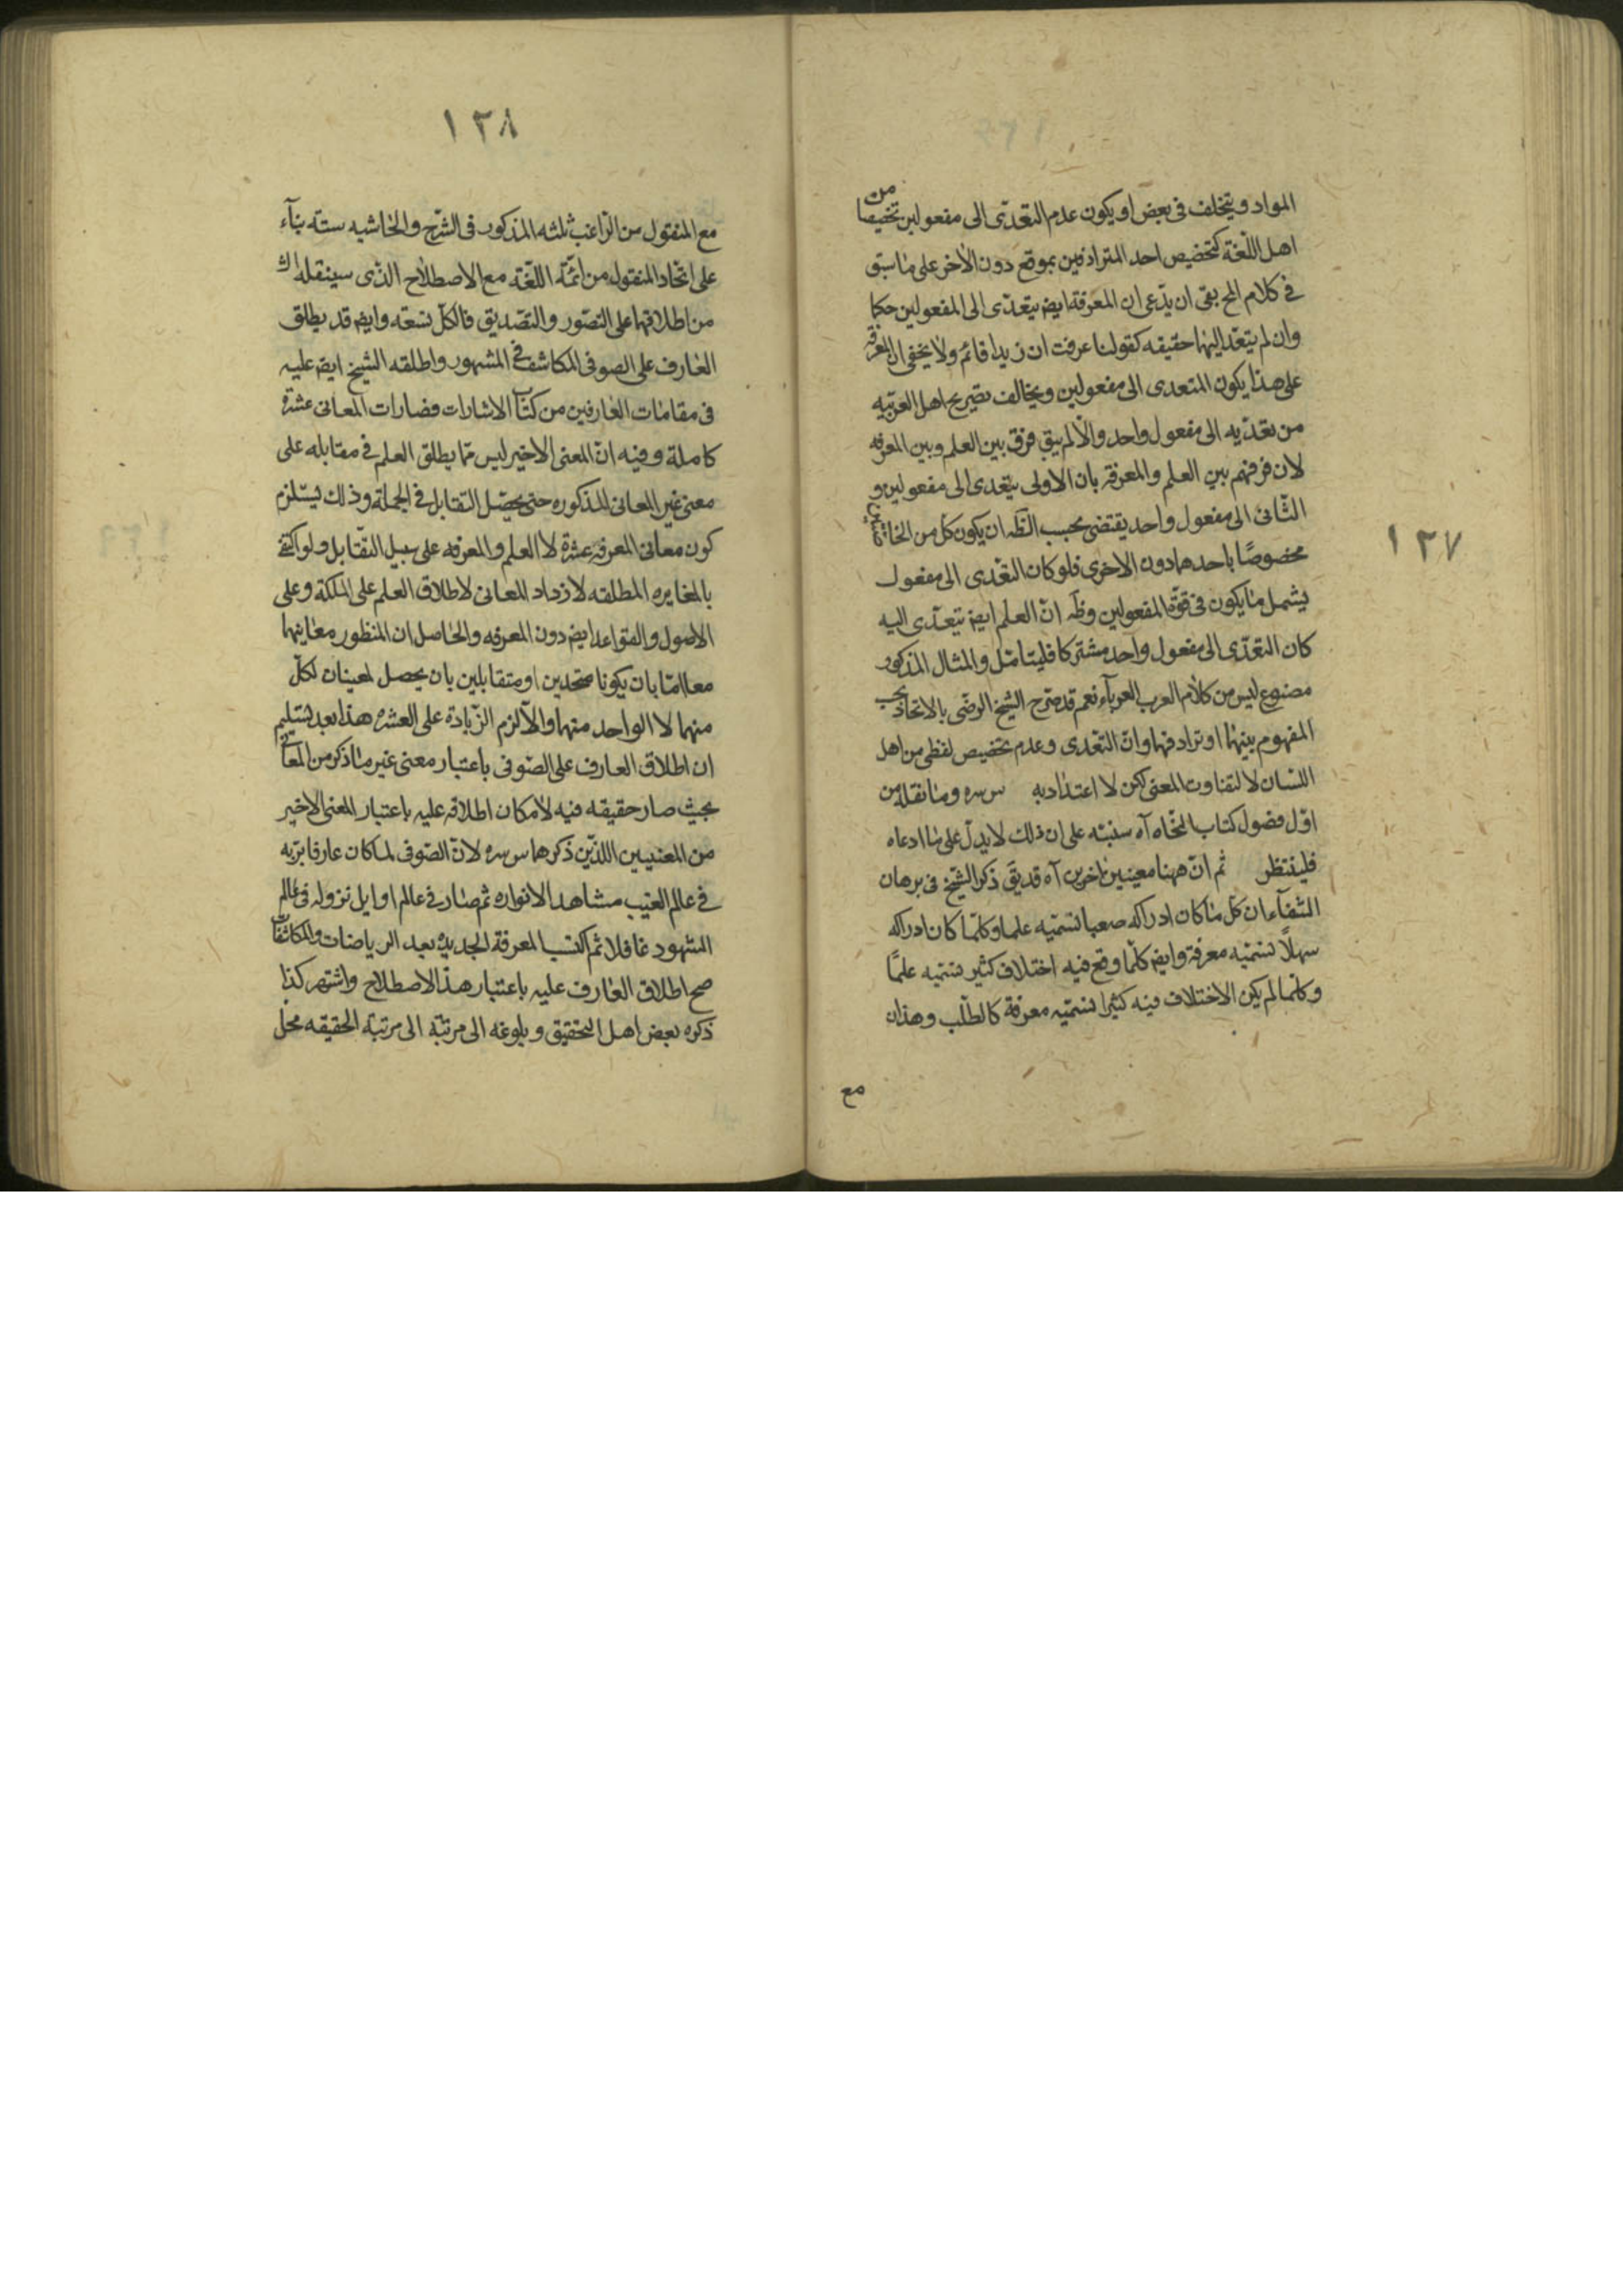 ١٣٧
المواد ويتخلف فى بعض او يكون عدم التعدّى الى مفعولين تخصيصا من
اهل اللّغة كتخصيص احد المترادفين بموقع دون الاخر على ما سبق
فى كلام المح بقى ان يدّعى ان المعرفة ايض يتعدّى الى المفعولين حكما
وان لم يتعد اليهما حقيقه كقولنا عرفت ان زيدا قائم ولا يخفى ان المعرفة
على هذا يكون المتعدى الى مفعولين ويخالف تصريح اهل العربيّه
من تعدّيه الى مفعول واحد والّا لم يبق فرق بين العلم وبين المعرفه
لان فرقهم بين العلم والمعرفة بان الاولى يتعدى الى مفعولين و
الثّانى الى مفعول واحد يقتضى بحسب الظّه ان يكون كل من الخاصّتين
مخصوصًا باحدهما دون الاخرى فلو كان التعّدى الى مفعول
يشمل ما يكون فى قوّة المفعولين وظه انّ العلم ايض يتعدّى اليه
كان التعدّى الى مفعول واحد مشتركا فليتامّل والمثال المذكور
مصنوع ليس من كلام العرب العرباء نعم قد صرّح الشيخ الرضى بالاتحاد بحسب
المفهوم بينهما او ترادفهما وانّ التعّدى وعدم تخصيص لفظى من اهل
اللسان لا لتفاوت المعنى لكن لا اعتداد به س سره وما نقله من
اوّل فصول كتاب النحّاه آه سنبّه على ان ذلك لا يدلّ على ما ادعاه
فلينتظر ثم انّ ههنا معينين اخرين آه قد يق ذكر الشيخ فى برهان
الشّفآء ان كل ما كان ادراكه صعبا نسميّه علما وكلّما كان ادراكه
سهلًا نسميّه معرفة وايض كلّما وقع فيه اختلاف كثير نسميّه علمًا
وكلّما لم يكن الاختلاف فيه كثيرا نسميّه معرفة كالطلّب وهذان
مع
١٣٨
مع المنقول من الرّاغب ثلثه المذكور فى الشّرح والحاشيه ستّه بنآء
على اتّحاد المنقول من ائمّة اللّغة مع الاصطلاح الذّى سينقله
من اطلاقهما على التصّور والتصّديق فالكلّ تسعة وايض قد يطلق
العارف على الصوفى المكاشف فى المشهور واطلقه الشيخ ايض عليه
فى مقامات العارفين من كتاب الاشارات فصارات المعانى عشرة
كاملة وفيه انّ المعنى الاخير ليس ممّا يطلق العلم فى مقابله على
معنى غير المعانى المذكوره حتى يحصّل التقابل فى الجملة وذلك يستلزم
كون معانى المعرفه عشرة لا العلم والمعرفه على سبيل التقّابل ولو اكتفى
بالمغايره المطلقه لازداد المعانى لاطلاق العلم على الملكة وعلى
الاصول والقواعد ايض دون المعرفه والحاصل ان المنظور معاينهما
معا امّا بان يكونا متحدين او متقابلين بان يحصل لمعنيان لكلّ
منهما لا الواحد منهما والّا لزم الزّيادة على العشره هذا بعد تسليم
ان اطلاق العارف على الصّوفى باعتبار معنى غير ما ذكر من المعانى
بحيث صار حقيقه فيه لامكان اطلاقه عليه باعتبار المعنى الاخير
من المعنيين اللذّين ذكرهما س سره لانّ الصّوفى لما كان عارفا بربّه
فى عالم الغيب مشاهدا لانواره ثم صار فى عالم اوايل نزوله فى عالم
الشهود غافلا ثم اكتسب المعرفة الجديده بعد الرياضات والمكاشفات
صح اطلاق العارف عليه باعتبار هذا الاصطلاح واشتهر كذا
ذكره بعض اهل التحقيق وبلوغه الى مرتبة الى مرتبة الحقيقه محل